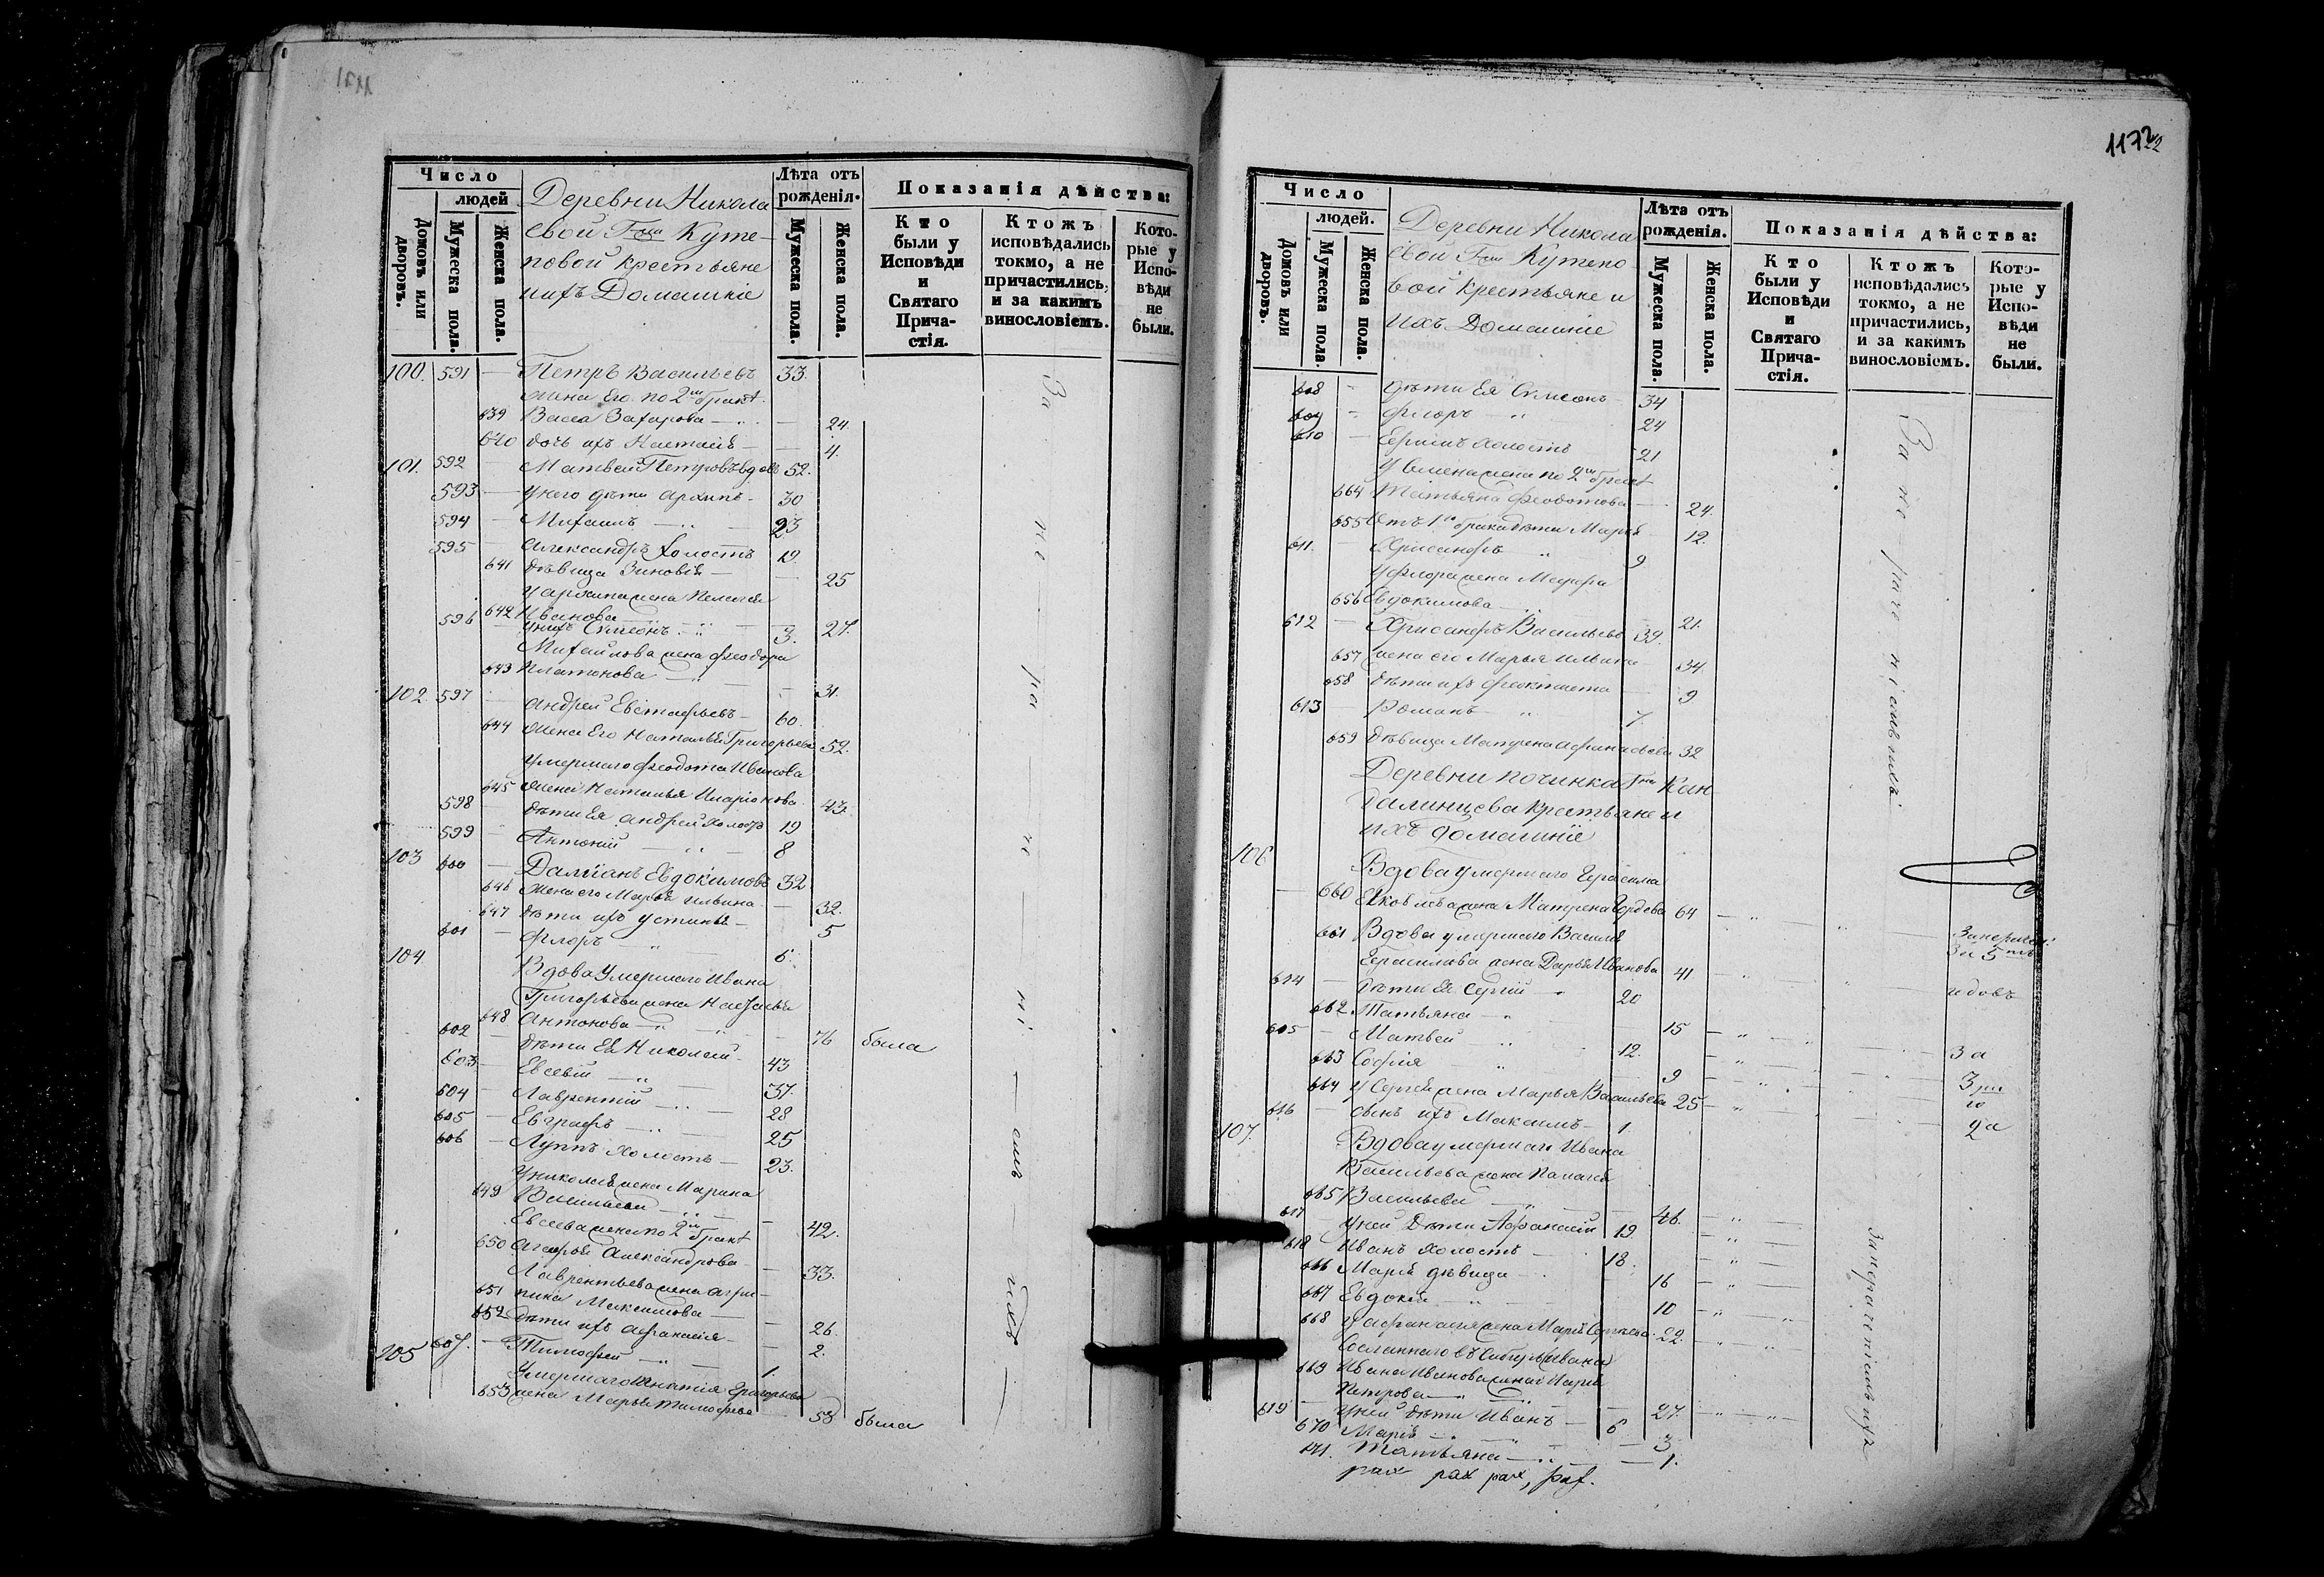 Число
людей
Домовъ или дворовъ.
Мужеска пола.
Женска пола.
Деревни Никола
евой Гжи Куте-
повой крестьяне
иихъ Домашніе
Лѣта отъ рожденія.
Мужеска пола.
Женска пола.
Показанія дѣйства:
Кто были у Исповѣди и Святаго Прича-стія.
Ктожъ исповѣдались токмо, а не причастились, и за какимъ винословіемъ.
Кото-рые у Испо-вѣди не были.
100. 591 — Петръ Васильевъ 33.
Жена Его по 2мъ бракѣ
639 Васса Захарова — 24.
640 дочь ихъ Настасія — 4.
101. 592 — Матвей Петровъ вдовъ 52.
593 — У него дѣти Архипъ — 30
594 — Михаилъ — 23
595 — Александръ холостъ 19.
641 дѣвица Зиновія — 25
У Архипа жена Пелагея
642 Иванова — 27.
596 — У нихъ Симеонъ — 3.
Михайлова жена Феодора
643 Платонова — 31.
102 597 — Андрей Евстафьевъ — 60.
644 Жена Его Наталья Григорьева 52.
Умершаго Феодота Иванова
645 Жена Наталья Иларіонова 43.
598 — дѣти Ея Андрей холостъ 19
599 — Антоній — 8
103 600 — Даміанъ Евдокимовъ 32
646 Жена его Марья Ильина — 32.
647 дѣти ихъ Устинья — 5
601 — Флоръ — 6.
104. Вдова Умершаго Ивана
Григорьева жена Настасья
648 Антонова — 76 была
602 — дѣти Ея Николай — 43
603 — Евсевій — 37.
604 — Лаврентій — 28
605 — Евграфъ — 25
606 — Луппъ холостъ — 23.
У Николая жена Марина
649 Васильева — 42.
Евсева жена по 2мъ бракѣ
650 Агафья Александрова — 33.
Лаврентьева жена Агри-
651 пина Максимова — 26.
652 дѣти ихъ Афанасія — 2.
607. — Тимофей — 1.
105 Умершаго Игнатія Григорьева
653 жена Марья Тимофеева — 53 была
За не ра че ні емъ ихъ
1172
Число
людей.
Домовъ или дворовъ.
Мужеска пола.
Женска пола.
Деревни Никола
евой Гжи Кутепо
вой крестьяне и
ихъ Домашніе
Лѣта отъ рожденія.
Мужеска пола.
Женска пола.
Показанія дѣйства:
Кто были у Исповѣди и Святаго Прича-стія.
Ктожъ исповѣдались токмо, а не причастились, и за какимъ винословіемъ.
Кото-рые у Испо-вѣди не были.
608 — дѣти Ея Симеонъ 34
609 — Флоръ — 24
610 — холостъ 21
У Симена жена по 2мъ бракѣ
654 Татьяна Феодотова — 24.
655 Отъ 1го брака дѣти Марья 12.
611. — Хрисанфъ 9
У Флора жена Марфа
656 Евдокимова — 21.
612 — Хрисанфъ Васильевъ 39.
657 жена его Марья Ильина 34.
658 дѣти ихъ Феоктиста — 9
613 Романъ 7.
659 дѣвица Матрена Афанасьева 32
Деревни Починка Гна Кан
далинцева крестьяне и
ихъ домашніе
106 Вдова умершаго Герасима
660 Яковлева жена Матрена Гордеева 64
661 Вдова умершаго Василья
Герасимова жена Дарья Иванова 41
614 — дѣти Ея Сергій — 20
662 Татьяна — 15
615 — Матвей — 12.
663 Софія — 9
664 У Сергея жена Марья Васильева 25
616 — сынъ ихъ Максимъ — 1
107. Вдова умершаго Ивана
Васильева жена Пелагея
665 Васильева — 46.
617 У ней Дѣти Афанасій 19
618 Иванъ холостъ — 18.
666 Марья дѣвица — 16
667 Евдокія — 10
668 У Афанасія жена Марья Сергѣева 22.
Сосланнаго въ Сибирь Ивана
669 Ивана Иванова жена Марья
Петрова — 27.
619 У ней дѣти Иванъ — 6
670 Марія — 3
671. Татьяна — 1.
За не раче ніемъ ихъ
занераченіемъ ихъ